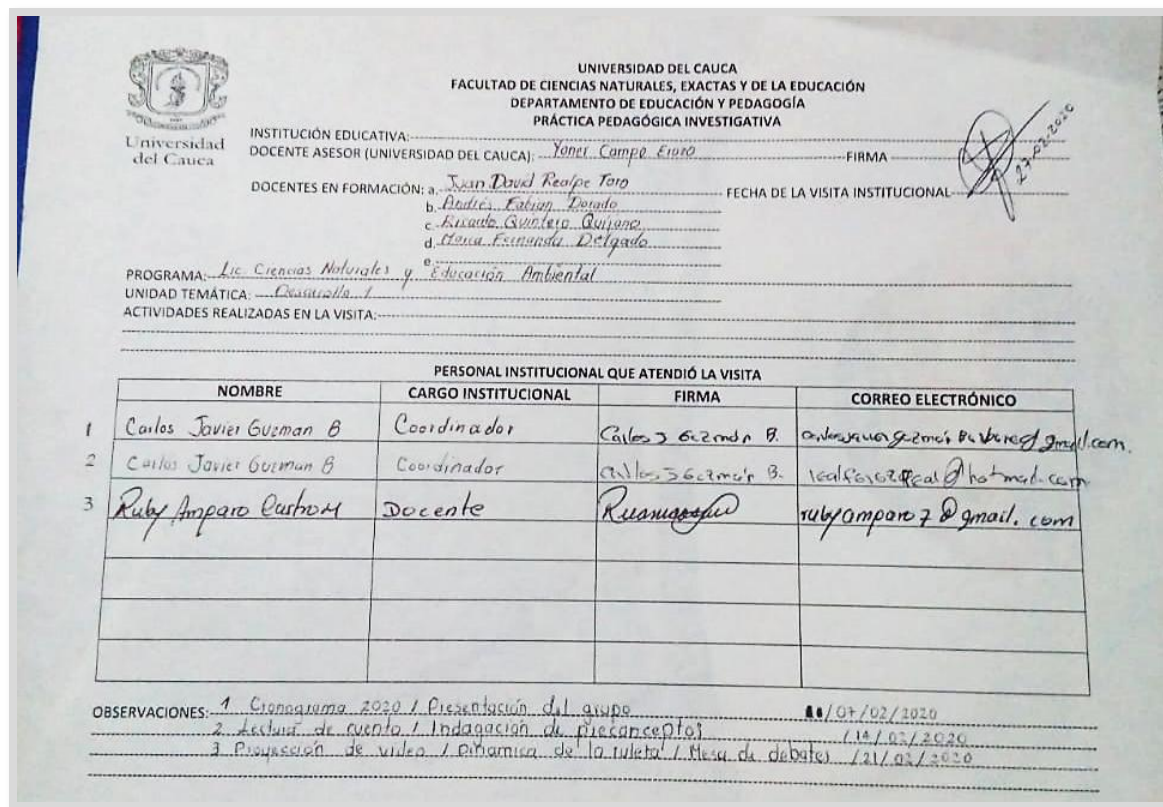 UNIVERSIDAD DEL CAUCA
FACULTAD DE CIENCIAS NATURALES, EXACTAS Y DE LA EDUCACIÓN
DEPARTAMENTO DE EDUCACIÓN Y PEDAGOGÍA
PRÁCTICA PEDAGÓGICA INVESTIGATIVA
Universidad
del Cauca
INSTITUCIÓN EDUCATIVA:
DOCENTE ASESOR (UNIVERSIDAD DEL CAUCA): Yoner Campo FIRMA
27-02-2020
DOCENTES EN FORMACIÓN: a. Juan David Realpe Toro FECHA DE LA VISITA INSTITUCIONAL
b. Andrés Fabian Dorado
c. Ricardo Quintero Quijano
d. Maria Fernanda Delgado
e.
PROGRAMA: Lic Ciencias Naturales y Educación Ambiental
UNIDAD TEMÁTICA: Desarrollo 1
ACTIVIDADES REALIZADAS EN LA VISITA:
PERSONAL INSTITUCIONAL QUE ATENDIÓ LA VISITA
NOMBRE CARGO INSTITUCIONAL FIRMA CORREO ELECTRÓNICO
1 Carlos Javier Guzman B Coordinador Carlos J Guzmán B.
2 Carlos Javier Guzman B Coordinador Carlos J Guzmán B.
3 Ruby Amparo Castro M Docente rubyamparo7@gmail.com
OBSERVACIONES: 1 Cronograma 2020 / Presentación del grupo /07/02/2020
2 Lectura de cuento / Indagación de preconceptos /14/02/2020
3 Proyección de video / Dinamica de la ruleta / Mesa de debates /21/02/2020